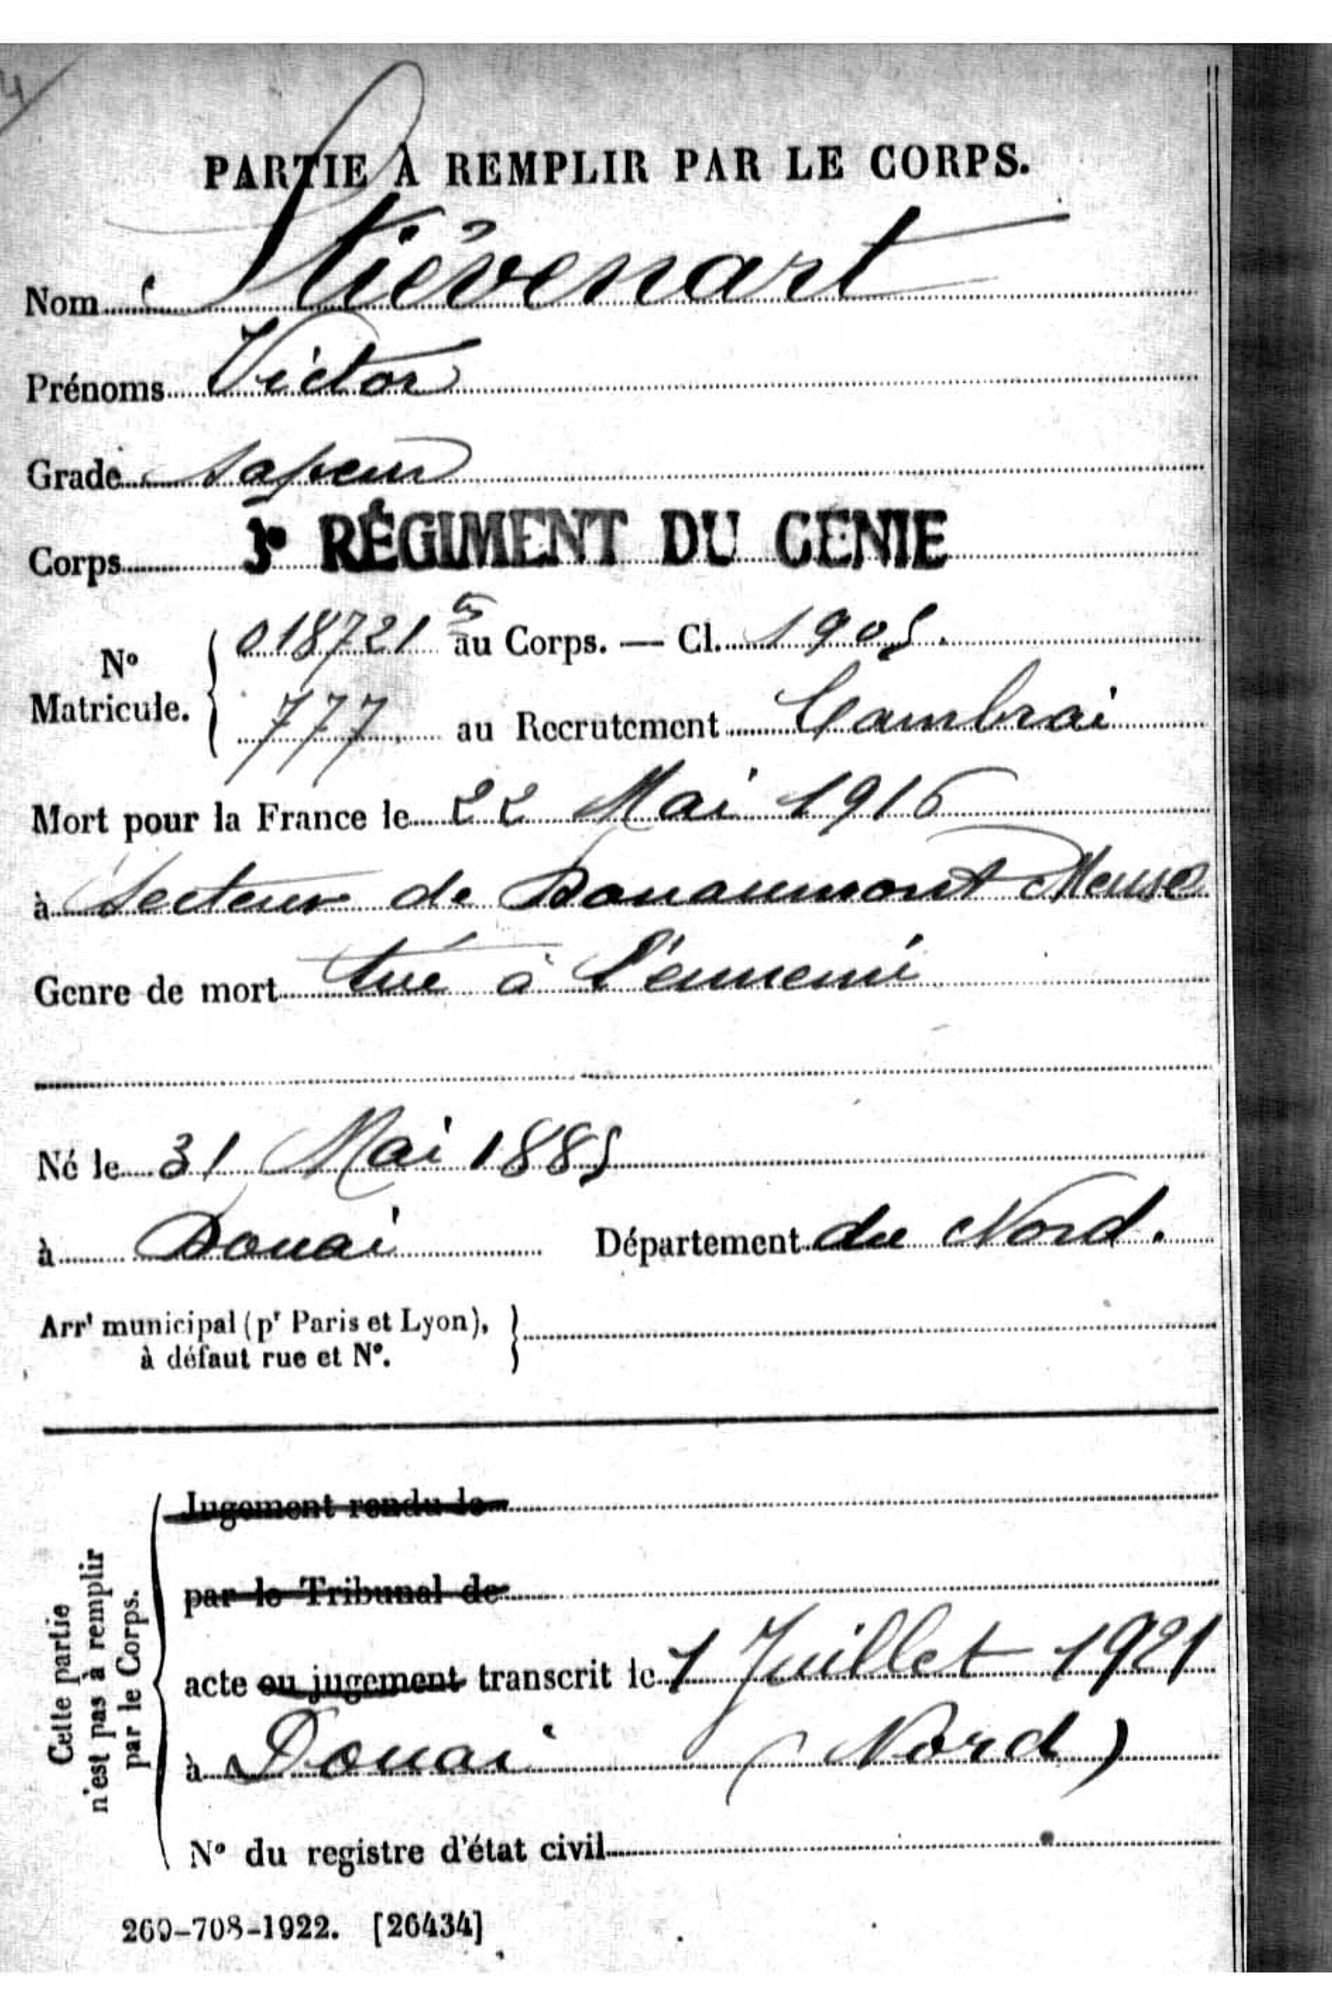 4
PARTIE À REMPLIR PAR LE CORPS.
Nom Stiévenart
Prénoms Victor
Grade sapeur
Corps 3e RÉGIMENT DU GÉNIE
No Matricule. { 018721 bis au Corps. — Cl. 1905.
777 au Recrutement Cambrai
Mort pour la France le 22 Mai 1916
à Secteur de Douaumont Meuse
Genre de mort tué à l'ennemi
Né le 31 Mai 1885
à Douai Département du Nord.
Arrt municipal (pr Paris et Lyon), }
à défaut rue et No.
Cette partie
n'est pas à remplir
par le Corps.
Jugement rendu le
par le Tribunal de
acte ou jugement transcrit le 1 Juillet 1921
à Douai (Nord)
No du registre d'état civil
269-708-1922. [26434]